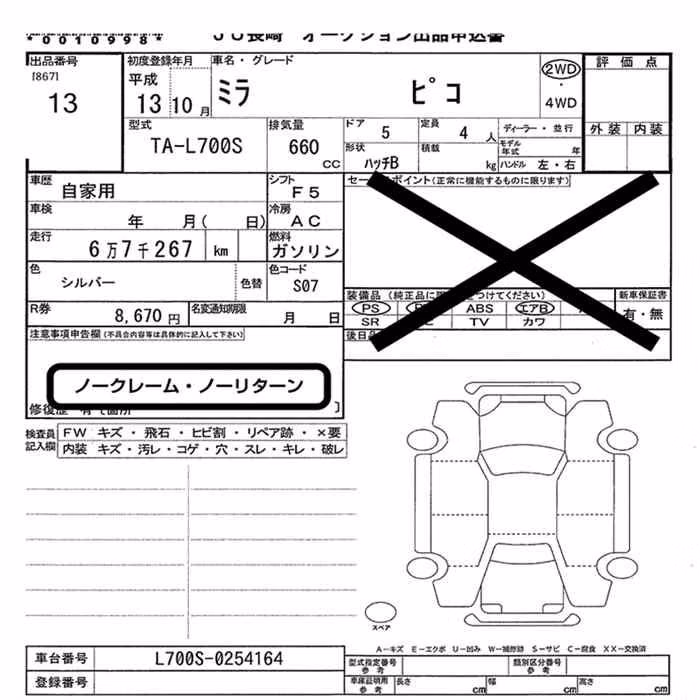 *0010998*
JU長崎 オークション出品申込書
出品番号
[867]
13
初度登録年月
平成
13 10 月
車名・グレード
ミラ ピコ
2WD
・
4WD
評価点
外装 内装
型式
TA-L700S
排気量
660
CC
ドア
5
定員
4 人
ディーラー・並行
モデル年式 年
形状
ハッチB
積載
kg
ハンドル 左・右
車歴
自家用
シフト
F5
車検
年 月( 日)
冷房
AC
走行
6万7千267 km
燃料
ガソリン
色
シルバー
色替
色コード
S07
R券
8,670 円
名変通知期限
月 日
セー ポイント(正常に機能するものに限ります)
装備品 (純正品に つけてください)
新車保証書
有・無
PS
ABS
エアB
SR
TV
カワ
後日
注意事項申告欄(不具合内容等は具体的に記入して下さい)
ノークレーム・ノーリターン
修復歴 有で箇所 ]
検査員記入欄
FW キズ・飛石・ヒビ割・リペア跡・×要
内装 キズ・汚レ・コゲ・穴・スレ・キレ・破レ
スペア
A-キズ E-エクボ U-凹み W-補修跡 S-サビ C-腐食 XX-交換済
車台番号
L700S-0254164
登録番号
型式指定番号
参考
類別区分番号
参考
車庫証明用
参考
長さ
cm
幅
cm
高さ
cm